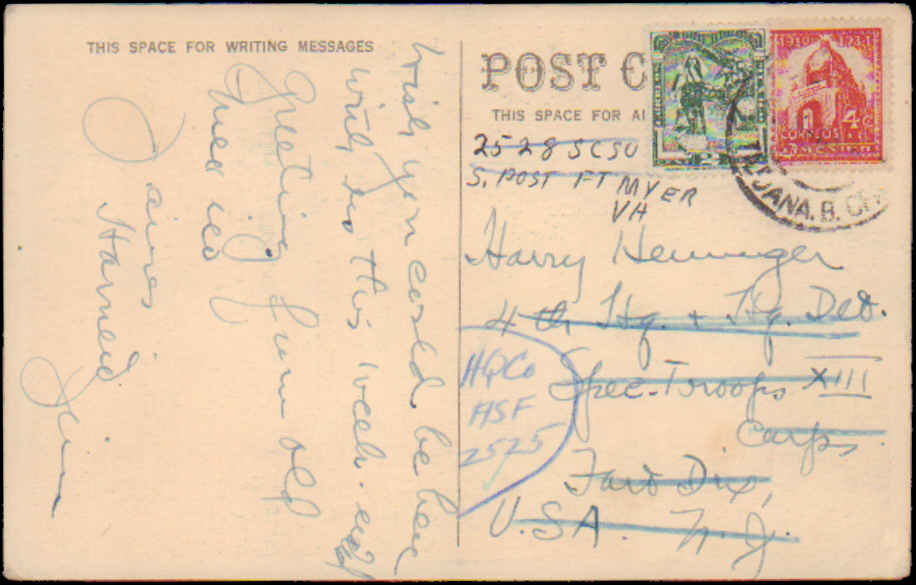 THIS SPACE FOR WRITING MESSAGES
Wish you could be here
with us this week-end
Greeting from old
Mexico
Jim
POST C
THIS SPACE FOR A
1910 1934
4c
CORREOS
MEXICO
TIJUANA. B. C
2528 SCSU
S. POST FT MYER
VA
Harry Heminger
4th Hq. + Hq. Det.
Spec. Troops XIII
Corps
Fort Dix,
U.S.A. N.J.
HQ Co
ASF
2525